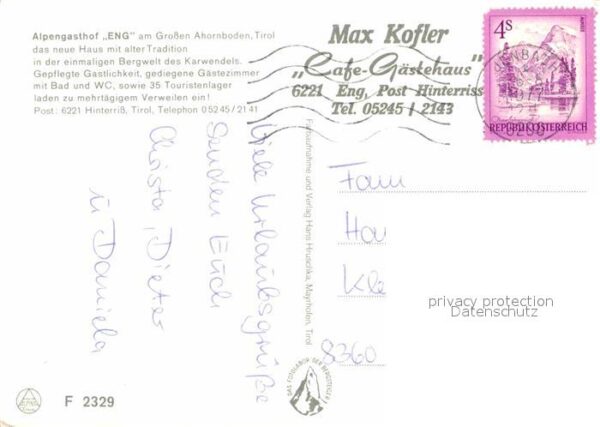 Alpengasthof „ENG" am Großen Ahornboden, Tirol
das neue Haus mit alter Tradition
in der einmaligen Bergwelt des Karwendels.
Gepflegte Gastlichkeit, gediegene Gästezimmer
mit Bad und WC, sowie 35 Touristenlager
laden zu mehrtägigem Verweilen ein!
Post: 6221 Hinterriß, Tirol, Telephon 05245/2141
Max Kofler
„Cafe-Gästehaus"
6221 Eng, Post Hinterriss
Tel. 05245 / 2143
4S
REPUBLIK ÖSTERREICH
Viele Urlaubsgrüße
senden Euch
Christa, Dieter
u Daniela
Farbaufnahme und Verlag Hans Hruschka, Mayrhofen, Tirol
Fam
Ha
Kle
8360
privacy protection
Datenschutz
DAS FOTOLABOR DER BERGSTEIGER
F 2329